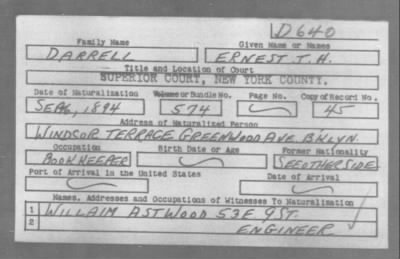 D640
Family Name Given Name or Names
DARRELL ERNEST T.H.
Title and Location of Court
SUPERIOR COURT, NEW YORK COUNTY.
Date of Naturalization Volume or Bundle No. Page No. Copy of Record No.
SEP 6, 1894 574 45
Address of Naturalized Person
WINDSOR TERRACE GREENWOOD AVE BKLYN.
Occupation Birth Date or Age Former Nationality
BOOKKEEPER SEE OTHER SIDE
Port of Arrival in the United States Date of Arrival
Names, Addresses and Occupations of Witnesses To Naturalization
1 WILLAIM ASTWOOD 53 E. 9 ST.
2 ENGINEER